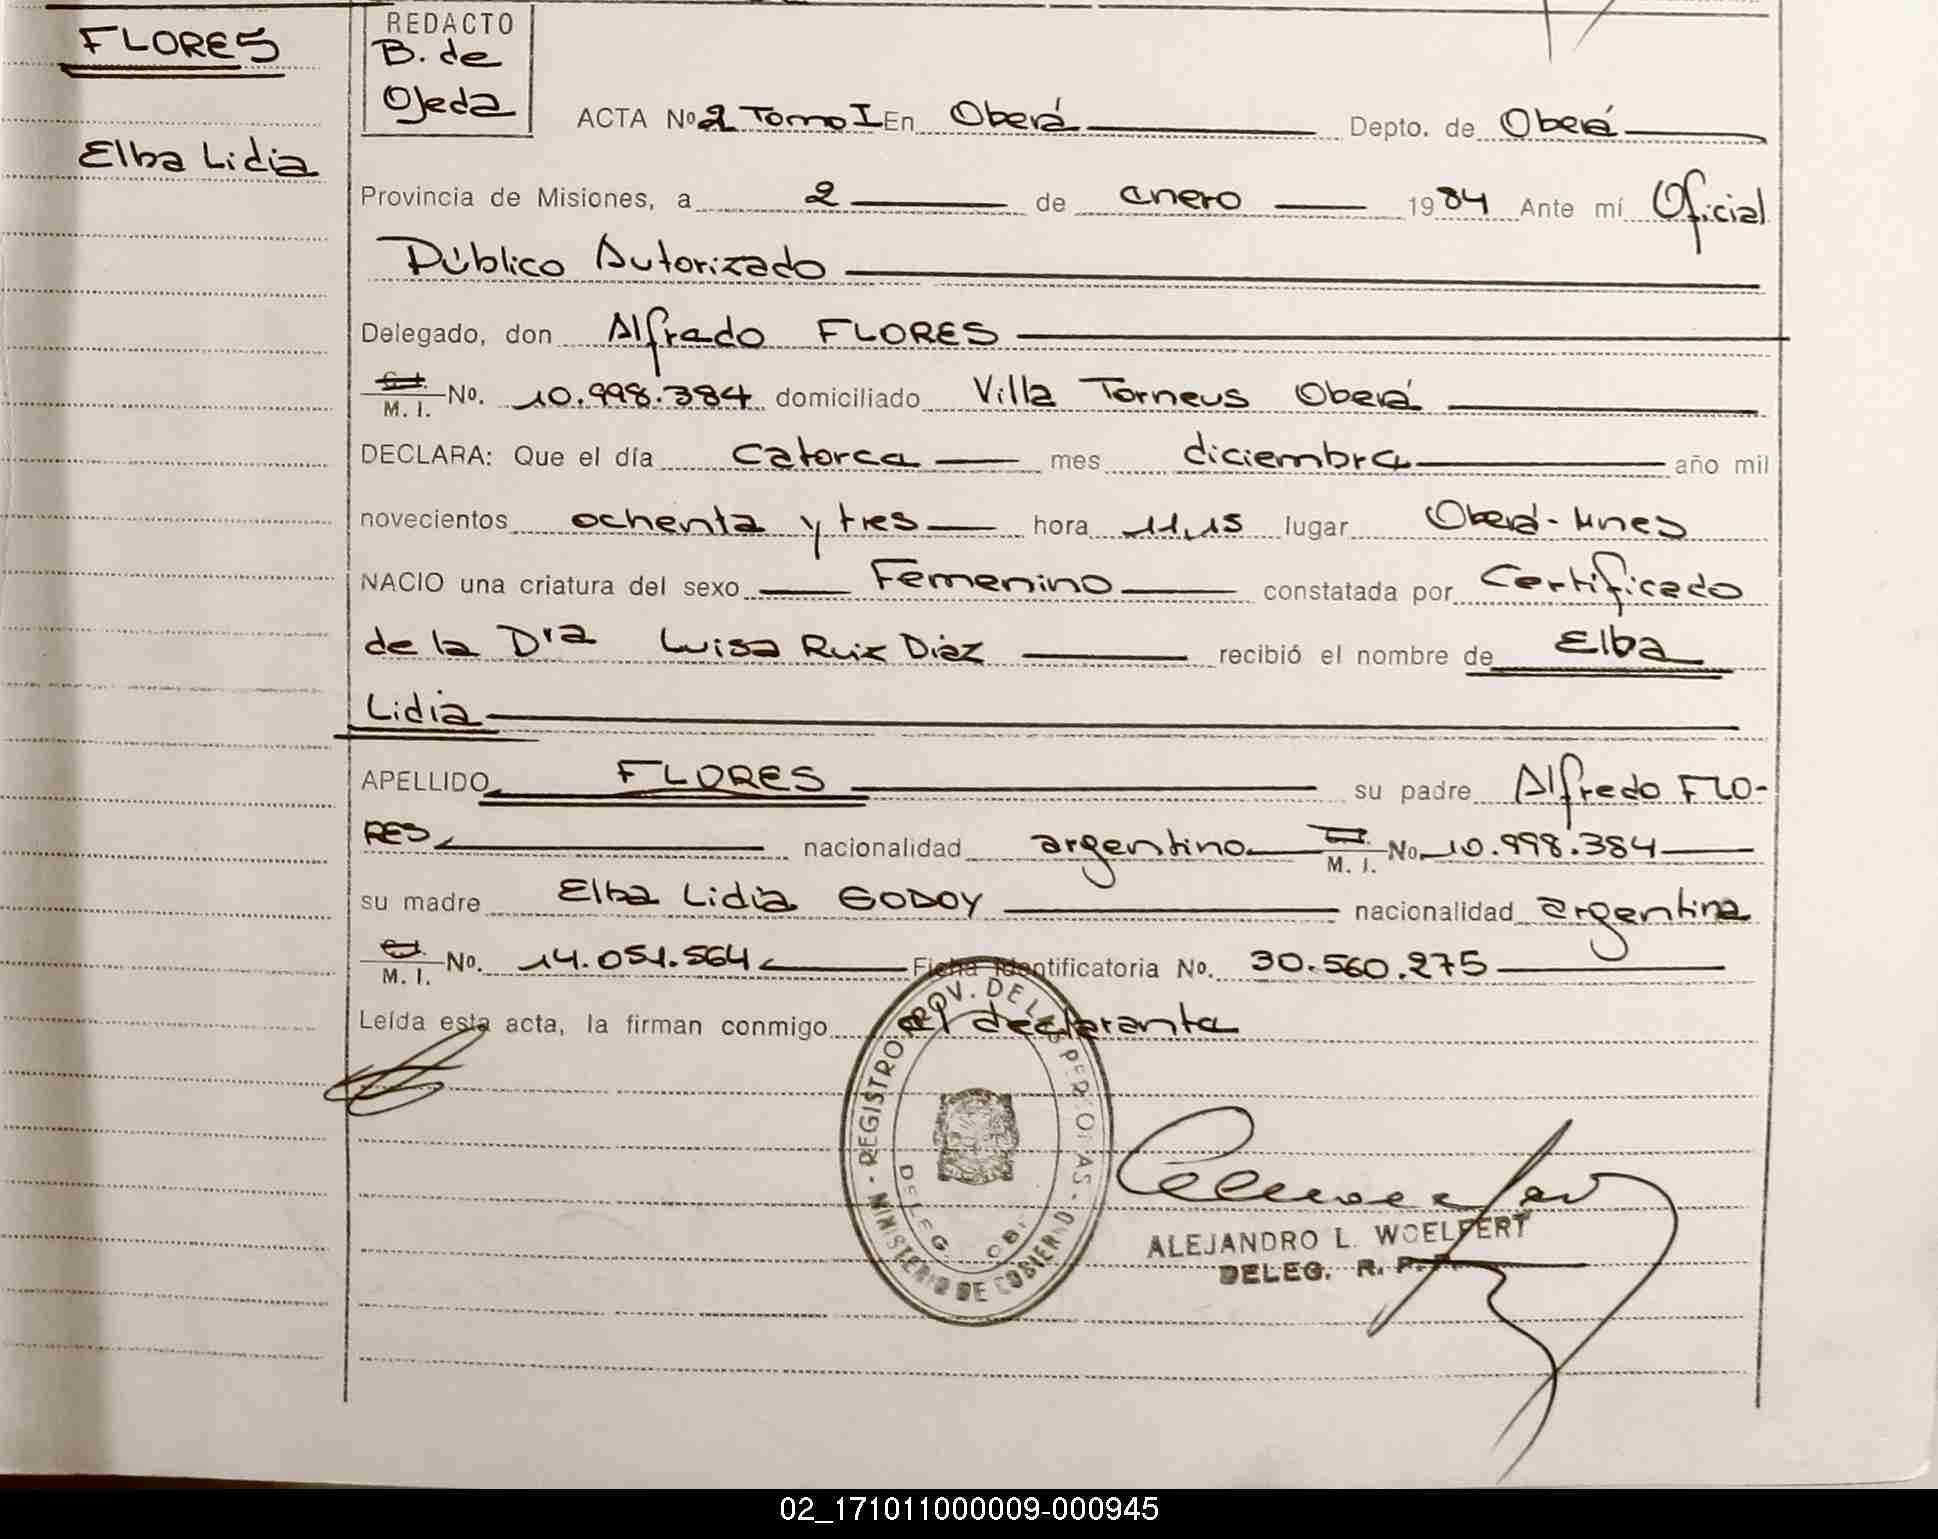 FLORES
Elba Lidia
REDACTO
B. de
Ojeda
ACTA Nº 2 Tomo I En Oberá Depto. de Oberá
Provincia de Misiones, a 2 de enero 1984 Ante mí Oficial
Público Autorizado
Delegado, don Alfredo FLORES
C.I.
M. I. No. 10.998.384 domiciliado Villa Torneus Oberá
DECLARA: Que el día catorce mes diciembre año mil
novecientos ochenta y tres hora 11,15 lugar Oberá - Mnes
NACIO una criatura del sexo Femenino constatada por Certificado
de la Dra Luisa Ruiz Diaz recibió el nombre de Elba
Lidia
APELLIDO FLORES su padre Alfredo FLO-
RES nacionalidad argentino M. I. No. 10.998.384
su madre Elba Lidia GODOY nacionalidad argentina
M. I. No. 14.051.564 Ficha Identificatoria No. 30.560.275
Leída esta acta, la firman conmigo el declarante
REGISTRO PROV. DE LAS PERSONAS - MINISTERIO DE GOBIERNO
DELEG. OB
ALEJANDRO L. WOELFERT
DELEG. R. P. P.
02_171011000009-000945